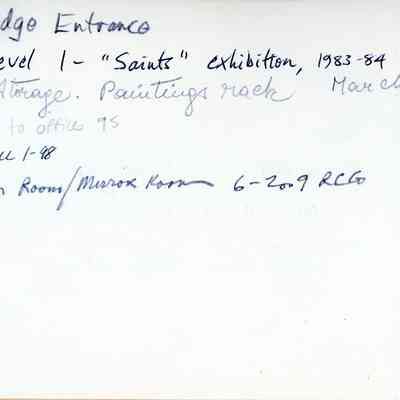 dge Entrance
evel 1 - "Saints" exhibition, 1983-84
Storage. Paintings rack March
to office 95
1-98
Room/Mirror Room 6-2009 RCG